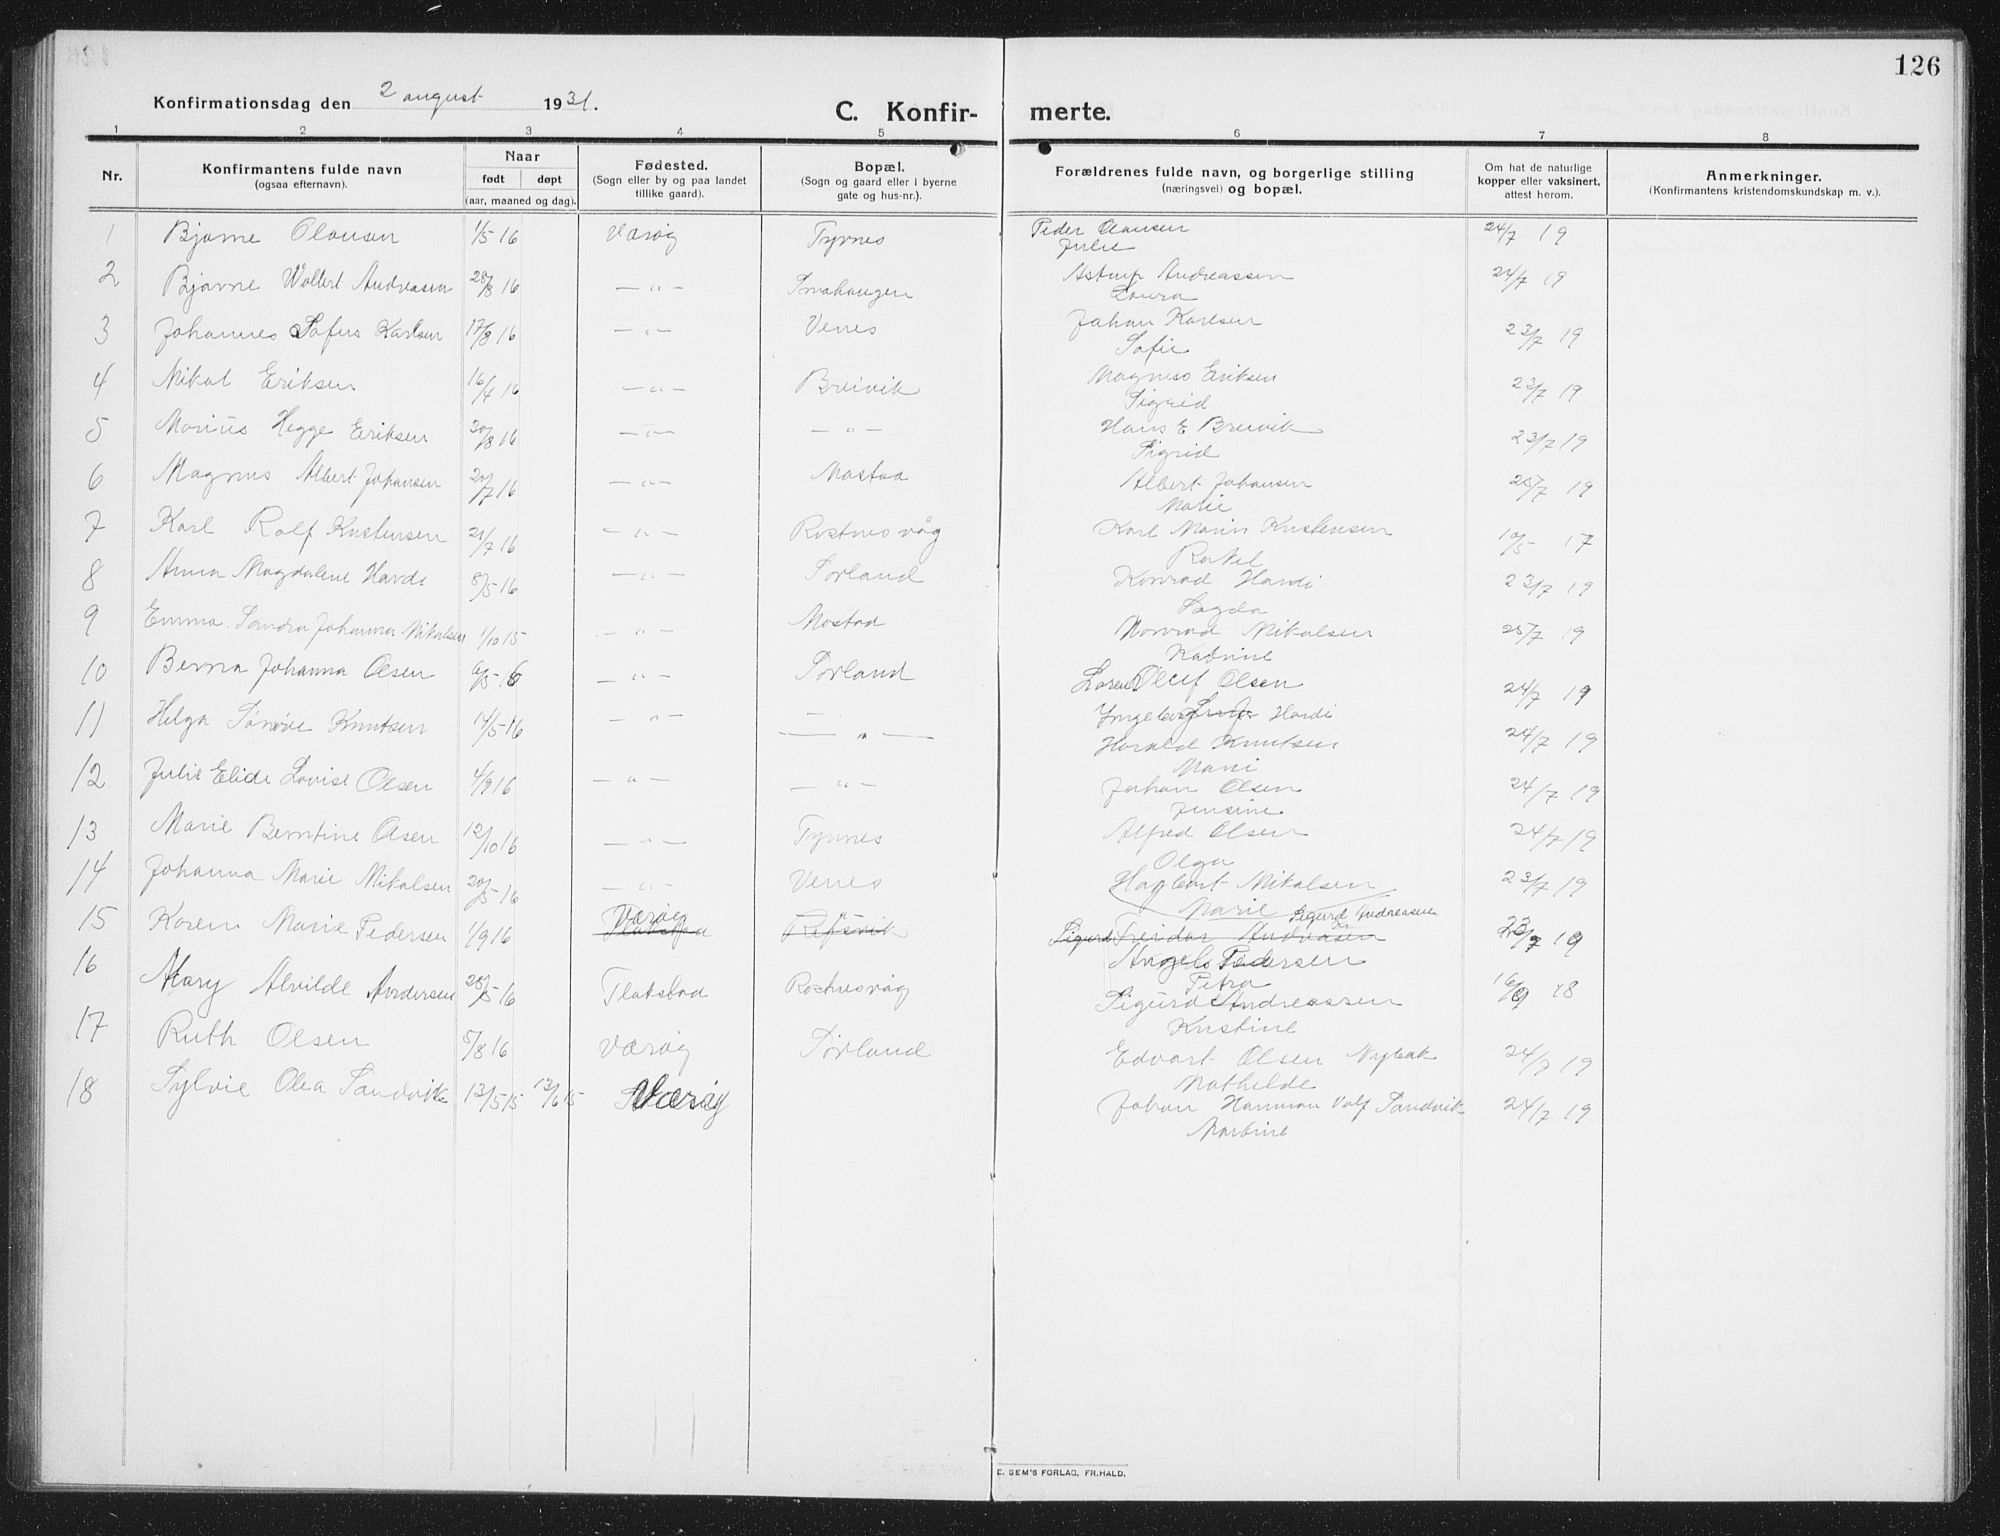 126
Konfirmationsdag den 2 august 1931.
C. Konfirmerte.
1 2 3 4 5 6 7 8
Nr. Konfirmantens fulde navn (ogsaa efternavn). Naar født døpt (aar, maaned og dag). Fødested. (Sogn eller by og paa landet tillike gaard). Bopæl. (Sogn og gaard eller i byerne gate og hus-nr.). Forældrenes fulde navn, og borgerlige stilling (næringsvei) og bopæl. Om hat de naturlige kopper eller vaksinert, attest herom. Anmerkninger. (Konfirmantens kristendomskundskap m. v.).
1 Bjarne Olausen 1/5 16 Værøy Tyvnes Peder Olausen 24/7 19
Julie
2 Bjarne Wolbert Andreasen 28/8 16 — " — Astrup Andreassen 24/7 19
Laura
3 Johannes Sofus Karlsen 17/8 16 — " — Venes Johan Karlsen 23/7 19
Sofie
4 Nikal Eriksen 16/4 16 — " — Breivik Magnus Eriksen 23/7 19
Sigrid
5 Marius Hegge Eriksen 20/8 16 — " — — " — Hans E Breivik 23/7 19
Sigrid
6 Magnus Albert Johansen 20/7 16 — " — Mostad Albert Johansen 25/7 19
Marie
7 Karl Rolf Kristensen 21/7 16 — " — Røstnesvåg Karl Marius Kristensen 10/5 17
Rakel
8 Anna Magdalene Hardi 8/5 16 — " — Sørland Konrad Hardi 23/7 19
Magda
9 Emma Sandra Johanna Mikalsen 1/10 15 — " — Mostad Konrad Mikalsen 25/7 19
Katrine
10 Berna Johanna Olsen 6/5 16 — " — Sørland Olsen 24/7 19
Hardi
11 Helga Synnøve Knutsen 14/5 16 — " — — " — Harald Knutsen 24/7 19
12 Julie Elide Lovise Olsen 4/9 16 — " — — " — Johan Olsen 24/7 19
Jensine
13 Marie Berntine Olsen 12/10 16 — " — Tyvnes Alfred Olsen 24/7 19
Olga
14 Johanna Marie Mikalsen 20/5 16 — " — Venes Hagbart Mikalsen 23/7 19
Marie Sigurd Andreassen
15 Karen Marie Pedersen 1/9 16 Værøy Refsvik Sigurd Andreasen 23/7 19
Angels Pedersen
Petra
16 Mary Alvilde Andersen 28/5 16 Flakstad Røstnesvåg Sigurd Andreassen 16/9 18
Kristine
17 Ruth Olsen 5/8 16 Værøy Sørland Edvart Olsen Nybak 24/7 19
Mathilde
18 Sylvie Olea Sandvik 13/5 15 13/6 15 Værøy Johan Sandvik 24/7 19
Martine
E. SEM'S FORLAG, FR.HALD.